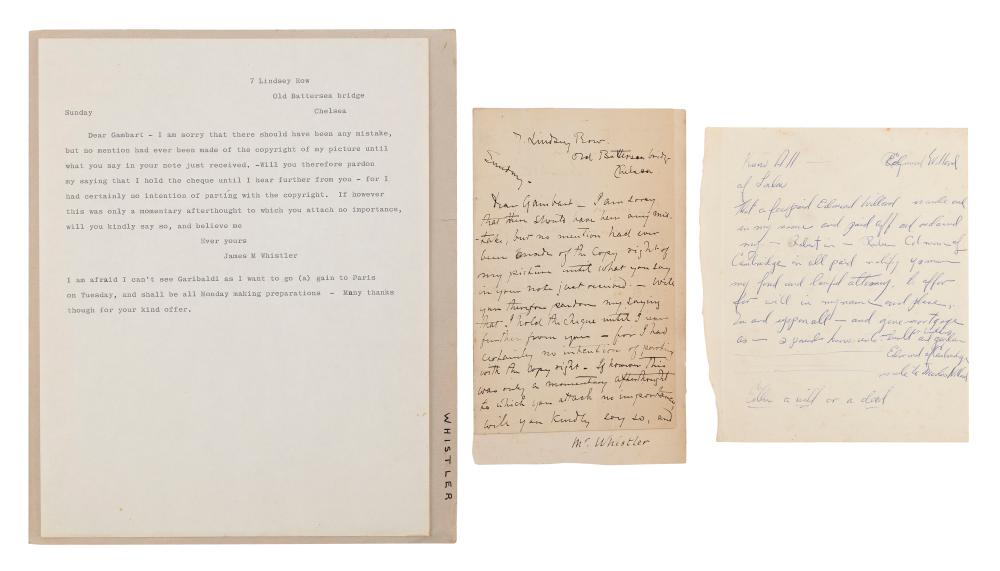 7 Lindsey Row
Old Battersea bridge
Sunday Chelsea
Dear Gambart - I am sorry that there should have been any mistake,
but no mention had ever been made of the copyright of my picture until
what you say in your note just received. -Will you therefore pardon
my saying that I hold the cheque until I hear further from you - for I
had certainly no intention of parting with the copyright. If however
this was only a momentary afterthought to which you attach no importance,
will you kindly say so, and believe me
Ever yours
James M Whistler
I am afraid I can't see Garibaldi as I want to go (a) gain to Paris
on Tuesday, and shall be all Monday making preparations - Many thanks
though for your kind offer.
WHISTLER
7 Lindsey Row.
Old Battersea bridge
Chelsea
Sunday.
Dear Gambart - I am sorry
that there should have been any mis
take, but no mention had ever
been made of the Copy right of
my picture until what you say
in your note just received. - Will
you therefore pardon my saying
that I hold the cheque until I hear
further from you - for I had
certainly no intention of parting
with the Copy right. - If however this
was only a momentary afterthought
to which you attach no importance,
will you kindly say so, and
Mr. Whistler
Edmund Willard
of
that a Edmund Willard
in my name and paid off
of
Cambridge in all paid notify
my fond and lawful attorney. to
for will in my name and
and upon all - and give mortgage
as -
Edmund
a will or a deed